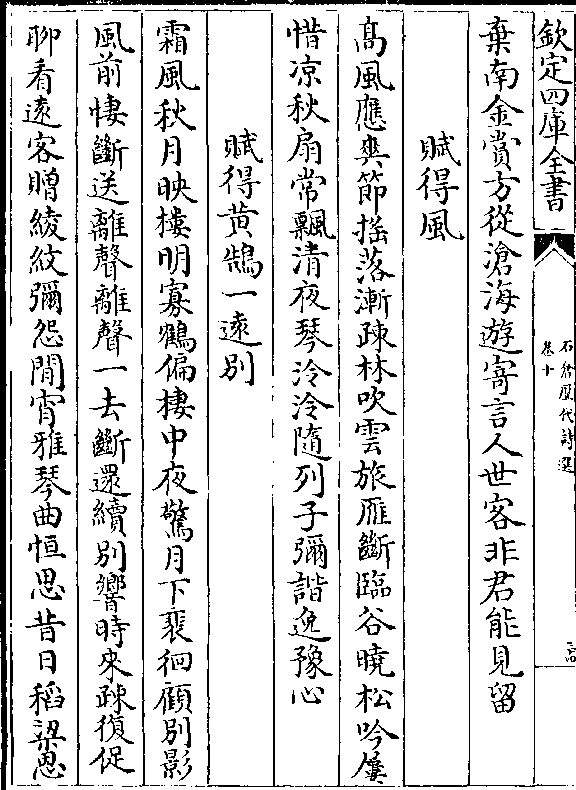 欽定四庫全書
石倉歷代詩選
卷十
棄南金賞方從滄海遊寄言人世客非君能見留
賦得風
髙風應爽節揺落漸疎林吹雲旅雁斷臨谷曉松吟屢
惜凉秋扇常飄清夜琴泠泠隨列子彌諧逸豫心
賦得黃鵠一逺别
霜風秋月映樓明寡鶴偏棲中夜驚月下裴徊顧别影
風前悽斷送離聲離聲一去斷還續别響時來疎復促
聊看逺客贈綾紋彌怨閒宵雅琴曲恒思昔日稻粱恩